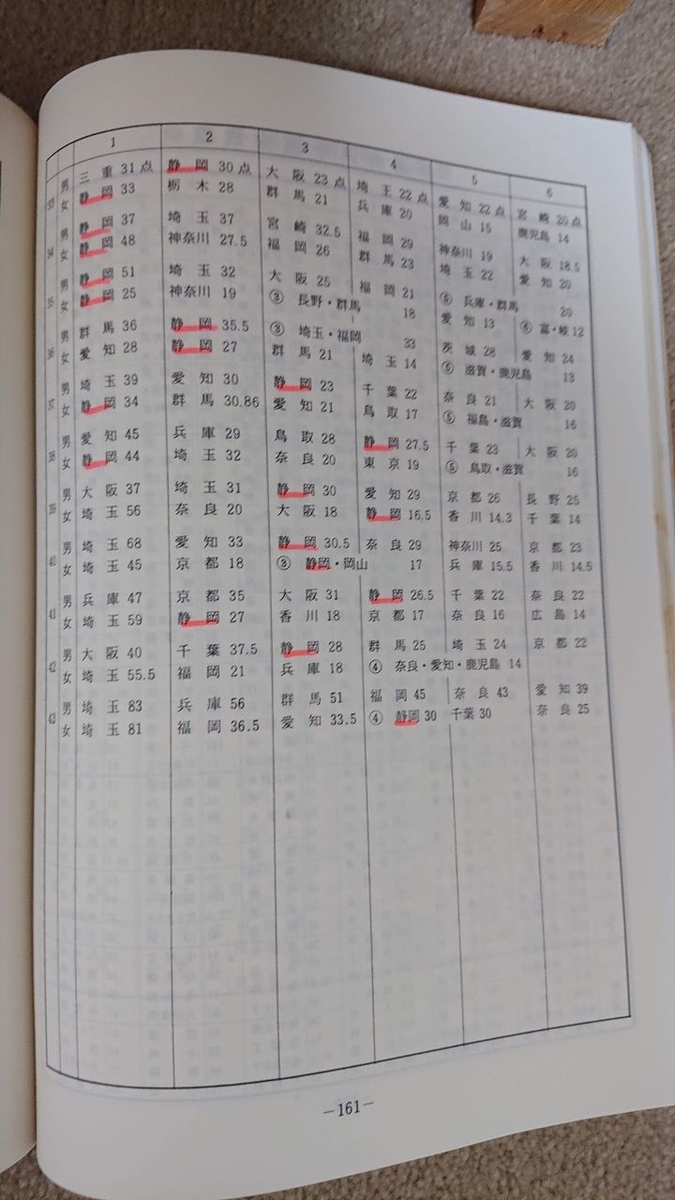 1 2 3 4 5 6
33 男 三重 31点 静岡 30点 大阪 23点 埼玉 22点 愛知 22点 宮崎 20点
女 静岡 33 栃木 28 群馬 21 兵庫 20 岡山 15 鹿児島 14
34 男 静岡 37 埼玉 37 宮崎 32.5 福岡 29 神奈川 19 大阪 18.5
女 静岡 48 神奈川 27.5 福岡 26 群馬 23 埼玉 22 愛知 20
35 男 静岡 51 埼玉 32 大阪 25 福岡 21 ⑤ 兵庫・群馬 20
女 静岡 25 神奈川 19 ③ 長野・群馬 18 愛知 13 ⑥ 富・岐 12
36 男 群馬 36 静岡 35.5 ③ 埼玉・福岡 33 茨城 28 愛知 24
女 愛知 28 静岡 27 群馬 21 埼玉 14 ⑤ 滋賀・鹿児島 13
37 男 埼玉 39 愛知 30 静岡 23 千葉 22 奈良 21 大阪 20
女 静岡 34 群馬 30.86 愛知 21 鳥取 17 ⑤ 福島・滋賀 16
38 男 愛知 45 兵庫 29 鳥取 28 静岡 27.5 千葉 23 大阪 20
女 静岡 44 埼玉 32 奈良 20 東京 19 ⑤ 鳥取・滋賀 16
39 男 大阪 37 埼玉 31 静岡 30 愛知 29 京都 26 長野 25
女 埼玉 56 奈良 20 大阪 18 静岡 16.5 香川 14.3 千葉 14
40 男 埼玉 68 愛知 33 静岡 30.5 奈良 29 神奈川 25 京都 23
女 埼玉 45 京都 18 ③ 静岡・岡山 17 兵庫 15.5 香川 14.5
41 男 兵庫 47 京都 35 大阪 31 静岡 26.5 千葉 22 奈良 22
女 埼玉 59 静岡 27 香川 18 京都 17 奈良 16 広島 14
42 男 大阪 40 千葉 37.5 静岡 28 群馬 25 埼玉 24 京都 22
女 埼玉 55.5 福岡 21 兵庫 18 ④ 奈良・愛知・鹿児島 14
43 男 埼玉 83 兵庫 56 群馬 51 福岡 45 奈良 43 愛知 39
女 埼玉 81 福岡 36.5 愛知 33.5 ④ 静岡 30 千葉 30 奈良 25
—161—